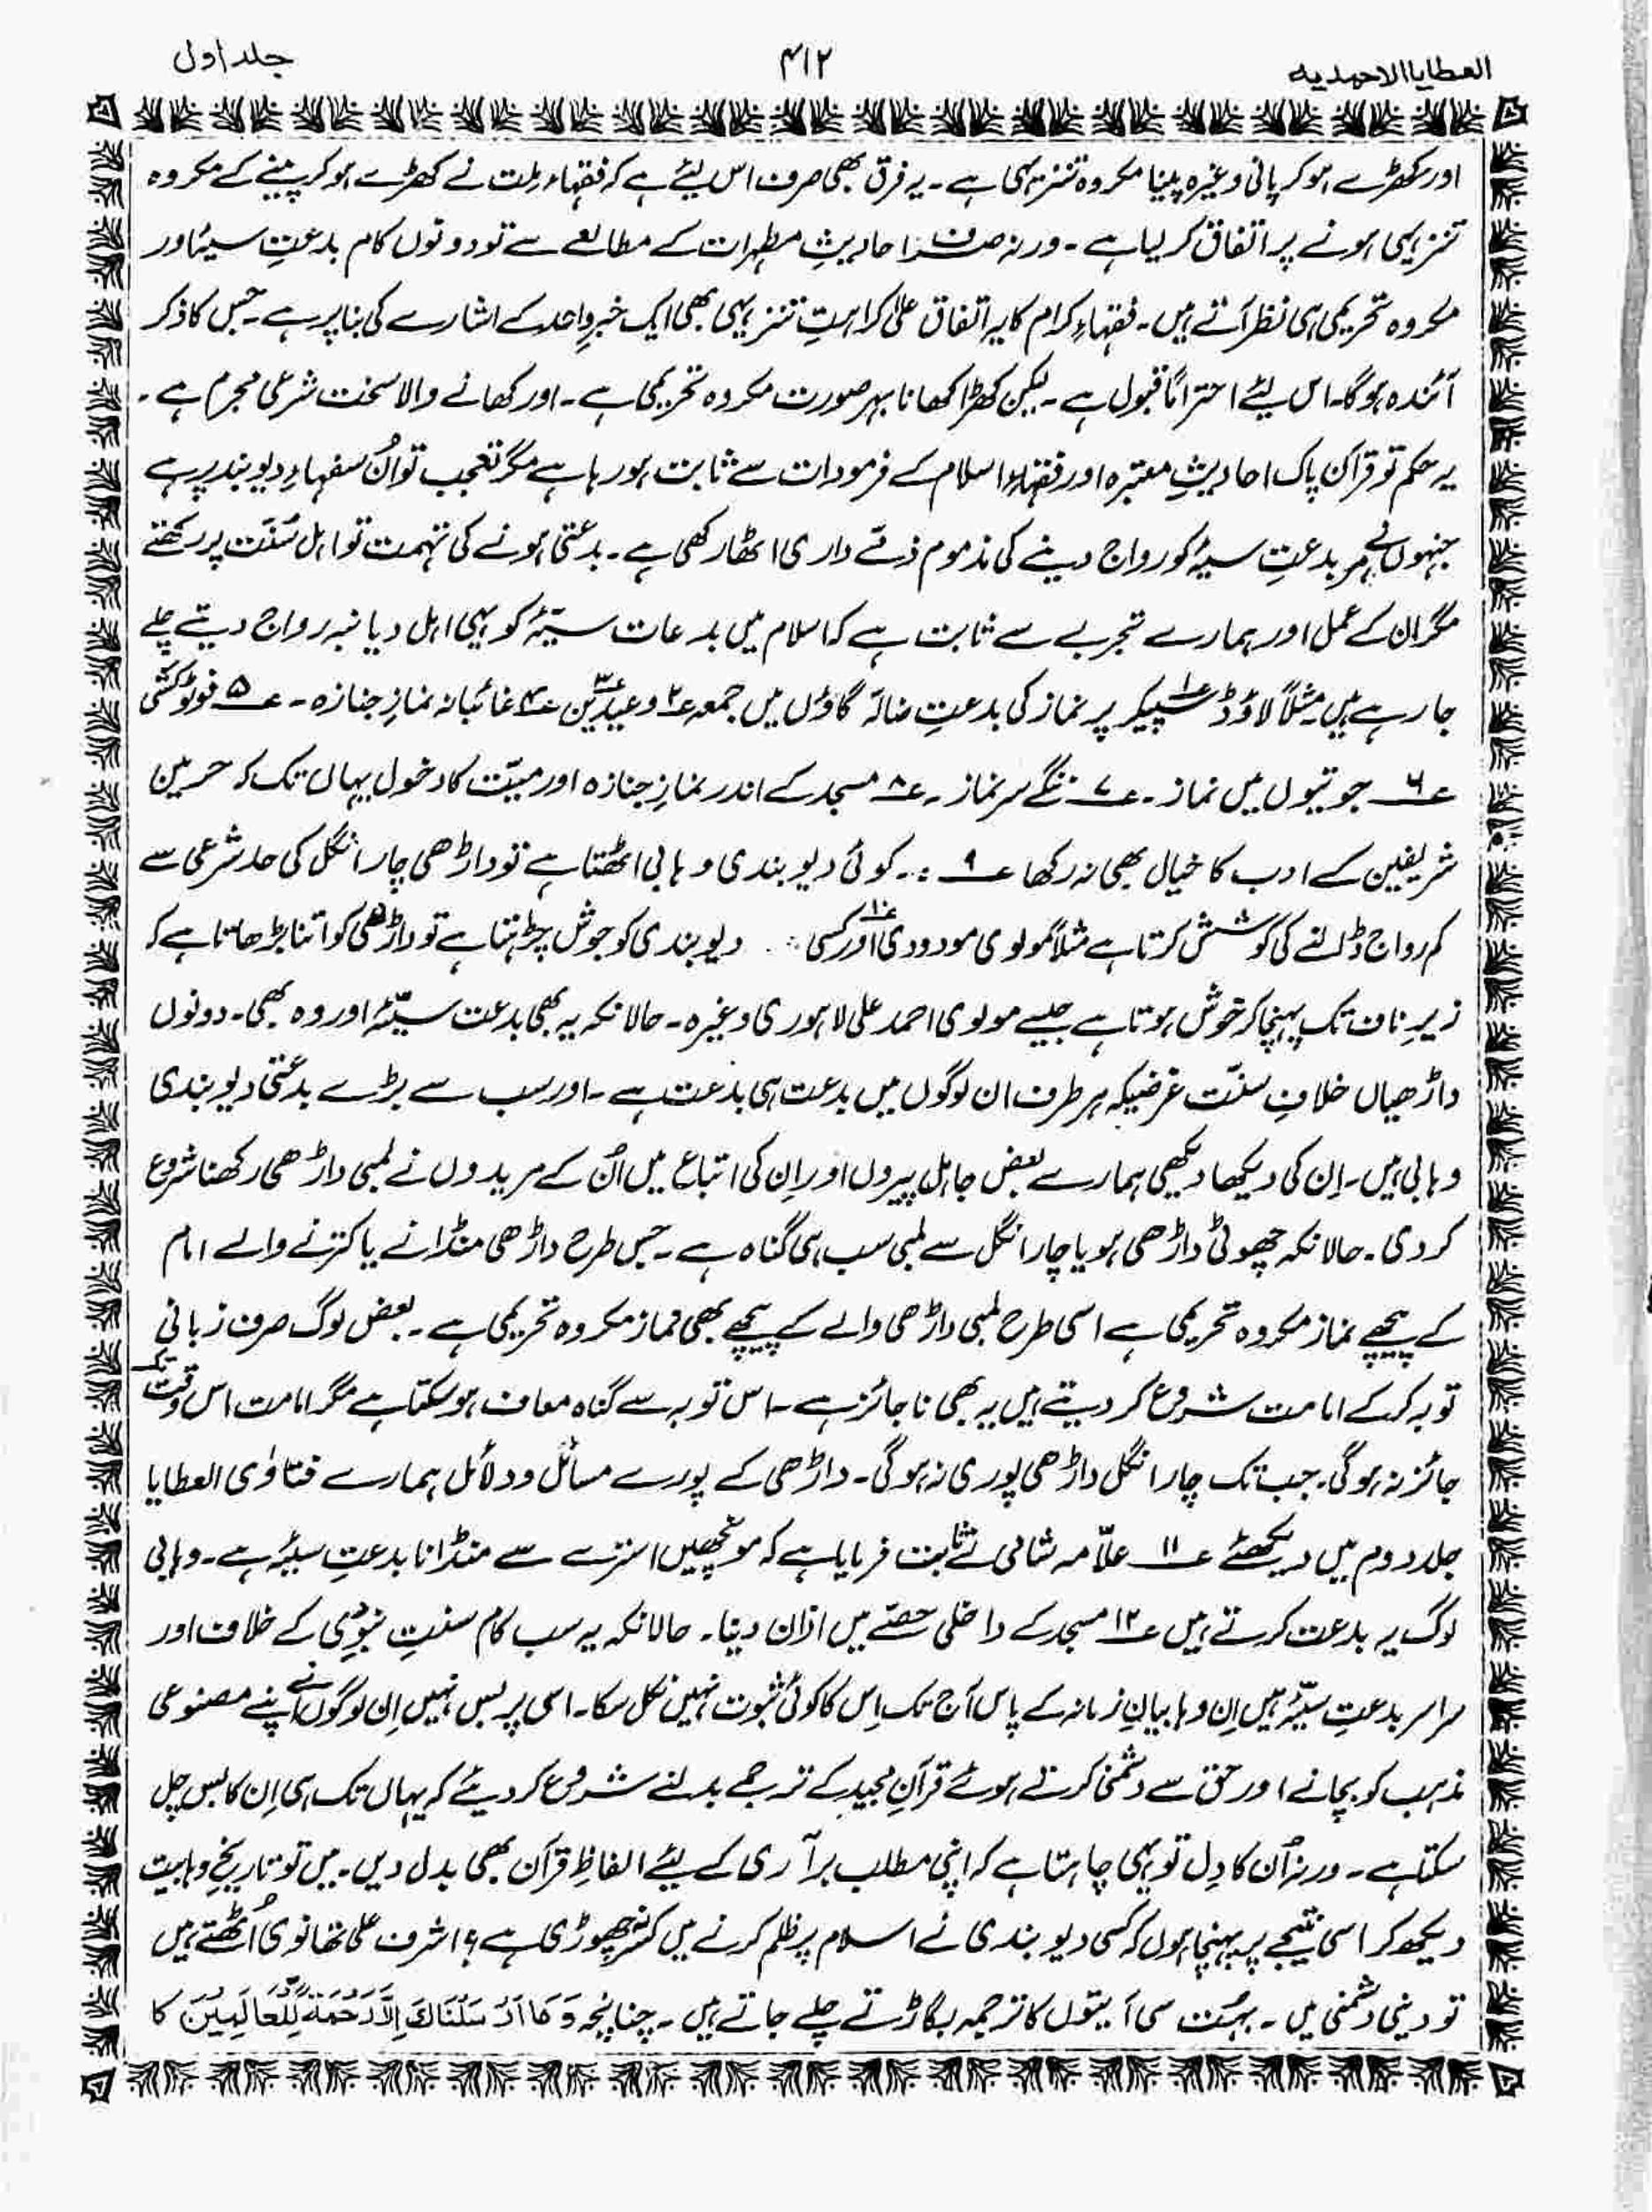 العطایا الاحمدیہ
۴۱۲
جلد اول
اور کھڑے ہو کر پانی وغیرہ پینا مکروہ تنزیہی ہے ۔ یہ فرق بھی صرف اس لیئے ہے کہ فقہاء ملت نے کھڑے ہو کر پینے کے مکروہ
تنزیہی ہونے پر اتفاق کر لیا ہے ۔ ورنہ صرف احادیثِ مطہرات کے مطالعے سے تو دونوں کام بدعتِ سیئہ اور
مکروہ تحریمی ہی نظر آتے ہیں ۔ فقہاءِ کرام کا یہ اتفاق علیٰ کراہتِ تنزیہی بھی ایک خبرِ واحد کے اشارے کی بنا پر ہے ۔ جس کا ذکر
آئندہ ہو گا۔ اس لیئے احتراماً قبول ہے ۔ لیکن کھڑا کھانا بہر صورت مکروہ تحریمی ہے ۔ اور کھانے والا سخت شرعی مجرم ہے ۔
یہ حکم تو قرآن پاک احادیثِ معتبرہ اور فقہاءِ اسلام کے فرمودات سے ثابت ہو رہا ہے مگر تعجب تو اُن سفہاءِ دیوبند پر ہے
جنہوں نے ہر بدعتِ سیئہ کو رواج دینے کی مذموم ذمّے داری اٹھا رکھی ہے ۔ بدعتی ہونے کی تہمت تو اہل سُنّت پر رکھتے
مگر ان کے عمل اور ہمارے تجربے سے ثابت ہے کہ اسلام میں بدعات سیّئہ کو یہی اہل دیابنہ رواج دیتے چلے
جا رہے ہیں مثلاً لاؤڈ ؏۱ سپیکر پر نماز کی بدعتِ ضالّہ گاؤں میں جمعہ ؏۲ و عیدین ؏۳ ؏۴ غائبانہ نمازِ جنازہ ۔ ؏۵ فوٹو کشی
؏۶ جوتیوں میں نماز ۔ ؏۷ ننگے سر نماز ۔ ؏۸ مسجد کے اندر نمازِ جنازہ اور میّت کا دخول یہاں تک کہ حرمین
شریفین کے ادب کا خیال بھی نہ رکھا ؏۹ :۔ کوئی دیوبندی وہابی اٹھتا ہے تو داڑھی چار انگل کی حد شرعی سے
کم رواج ڈالنے کی کوشش کرتا ہے مثلاً مولوی مودودی ؏۱۰ اور کسی دیوبندی کو جوش چڑہتا ہے تو داڑھی کو اتنا بڑھاتا ہے کہ
زیرِ ناف تک پہنچا کر خوش ہوتا ہے جیسے مولوی احمد علی لاہوری وغیرہ ۔ حالانکہ یہ بھی بدعت سیّئہ اور وہ بھی ۔ دونوں
داڑھیاں خلافِ سنّت غرضیکہ ہر طرف ان لوگوں میں بدعت ہی بدعت ہے ۔ اور سب سے بڑے بدعتی دیوبندی
وہابی ہیں ۔ اِن کی دیکھا دیکھی ہمارے بعض جاہل پیروں اور اِن کی اتباع میں اُن کے مریدوں نے لمبی داڑھی رکھنا شروع
کر دی ۔ حالانکہ چھوٹی داڑھی ہو یا چار انگل سے لمبی سب ہی گناہ ہے ۔ جس طرح داڑھی منڈانے یا کترنے والے امام
کے پیچھے نماز مکروہ تحریمی ہے اسی طرح لمبی داڑھی والے کے پیچھے بھی نماز مکروہ تحریمی ہے ۔ بعض لوگ صرف زبانی
توبہ کر کے امامت شروع کر دیتے ہیں یہ بھی ناجائز ہے ۔ اس توبہ سے گناہ معاف ہو سکتا ہے مگر امامت اس وقت تک
جائز نہ ہو گی ۔ جب تک چار انگل داڑھی پوری نہ ہو گی ۔ داڑھی کے پورے مسائل و دلائل ہمارے فتاوٰی العطایا
جلد دوم میں دیکھئے ؏۱۱ علّامہ شامی نے ثابت فرمایا ہے کہ مونچھیں استرے سے منڈانا بدعتِ سیئہ ہے ۔ وہابی
لوگ یہ بدعت کرتے ہیں ؏۱۲ مسجد کے داخلی حصّے میں اذان دینا ۔ حالانکہ یہ سب کام سنتِ نبوی کے خلاف اور
سراسر بدعتِ سیّئہ ہیں اِن وہابیانِ زمانہ کے پاس آج تک اِس کا کوئی ثبوت نہیں نکل سکا ۔ اسی پر بس نہیں اِن لوگوں نے اپنے مصنوعی
مذہب کو بچانے اور حق سے دشمنی کرتے ہوئے قرآنِ مجید کے ترجمے بدلنے شروع کر دیئے کہ یہاں تک ہی اِن کا بس چل
سکتا ہے ۔ ورنہ اُن کا دِل تو یہی چاہتا ہے کہ اپنی مطلب برآری کے لیئے الفاظِ قرآن بھی بدل دیں ۔ میں تو تاریخِ وہابیت
دیکھ کر اسی نتیجے پر پہنچا ہوں کہ کسی دیوبندی نے اسلام پر ظلم کرنے میں کسر چھوڑی ہے ؟ اشرف علی تھانوی اُٹھتے ہیں
تو دینی دشمنی میں ۔ بہُت سی آیتوں کا ترجمہ بگاڑتے چلے جاتے ہیں ۔ چنانچہ وَمَا اَرْسَلْنَاكَ اِلَّا رَحْمَةً لِّلْعَالَمِيْنَ کا